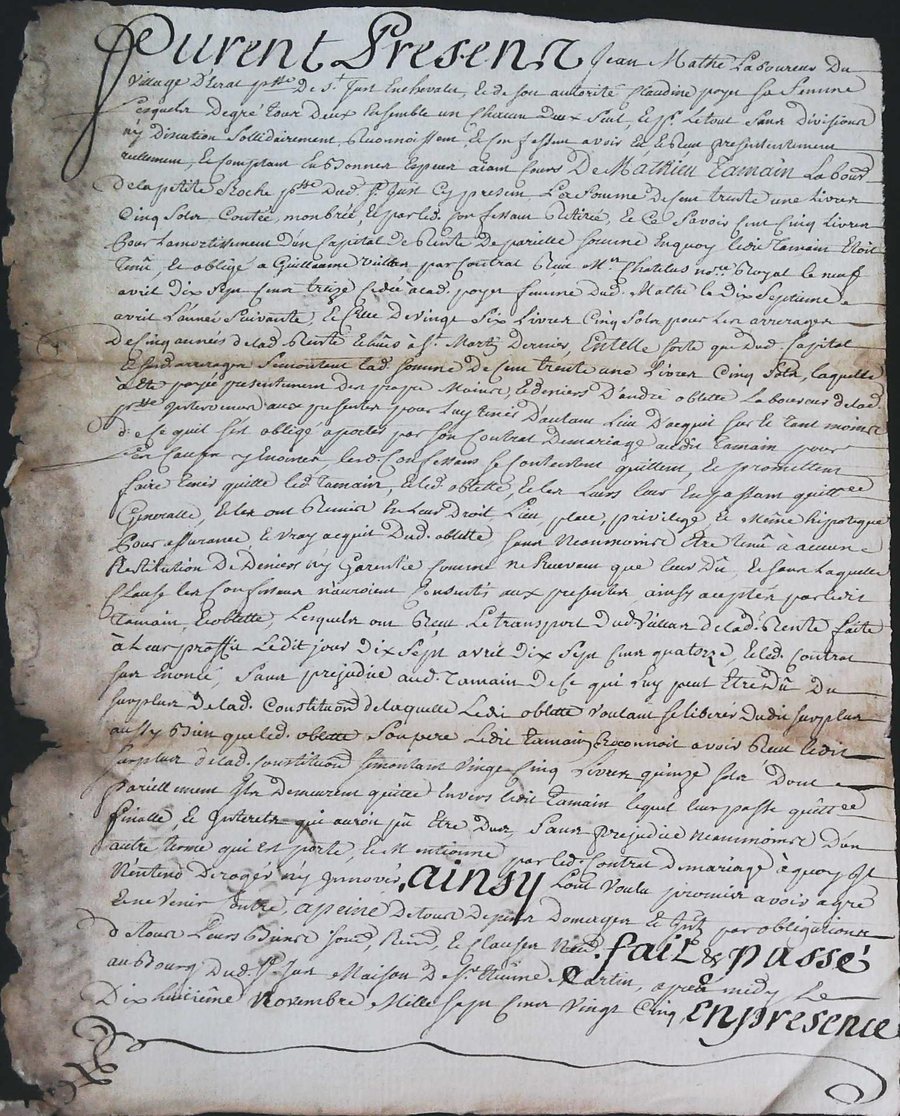 Furent Presens Jean Mathe Laboureur Du
village D'Erat psse De St Just Enchevalu, & de son autorité Claudine poyn sa femme
Lesquels De gré tous Deux Ensemble un Chacun Deux Seul, & pr Le tout Sans Division
ny Discution Sollidairement Reconnoissent, & Confessent avoir Eu & Reçu presentement
reellement, & Comptant En Bonnes Especes aiant Cours De Mathieu Tamain Labour
de la petite Roche psse Dud. St Just Cy present La Somme de Cent trente une Livres
Cinq Solz Contée, nombrée, & par led. Confessant Retirée, & Ce Savoir Cent Cinq Livres
Pour Lamortissement D'un Capital de Rente De pareille Somme En quoy Ledit Tamain Etoit
Tenû, & obligé a Guillaume par Contrat Reçu Me Chatelus nore Royal le neuf
avril Dix Sept Cent treize Cedée a lad. poyn femme Dud. Mathe le Dix Septieme
avril L'année Suivante, & Celle De vingt Six Livres Cinq Solz pour Les arrerages
De Cinq années de lad. Rente Echûs a St. Martin Dernier, En telle Sorte que Dud. Capital
& Sud. arrerages Semontent lad. Somme de Cent trente une Livres Cinq Solz, laquelle
a Eté payée presentement Des propres Mains, & deniers D'andré oblette Laboureur de lad.
psse Intervenant aux presentes pour Luy Tenir D'autant Lieu D'acquit Sur & tant moins
de Ce quil S'est obligé aportes par Son Contrat De mariage audit Tamain pour
Les Causes y Enoncées, lesd. Confessans Se Contentent quittent, & promettent
faire Tenir quitte led. Tamain, & led. oblette, & les Leurs Leur En passant quittce
Generalle, & les ont Remis En Leur Droit, Lieu, place, privilege, & Même hipoteque
Pour assurance & vray acquit Dud. oblette Sans Neanmoins Etre Tenû à aucune
Restitution De Deniers ny Garentie Comme ne Recevant que leur Dû, & Sans Laquelle
Clause les Confesseurs n'auroient Consentis aux presentes, ainsy acceptées par ledit
Tamain, & oblette, Lesquels ont Reçu Le transport Dud. de lad. Rente faite
à Leur proffit Ledit jour Dix Sept avril Dix Sept Cent quatorze, & led. Contrat
Sus Enoncé, Sans prejudice aud. Tamain De Ce qui luy peut Etre Dû Du
Surplus De lad. Constitution de laquelle Ledit oblette voulant Se liberer Dudit Surplus
aussy Bien que led. oblette Son pere Ledit Tamain Reconnoit avoir Reçu Ledit
Surplus de lad. Constitution Semontant vingt Cinq Livres quinze Solz Dont
Pareillement Ils Demeurent quitte Envers Ledit Tamain lequel leur passe quittce
finalle, & Interets qui auron pû Etre Dus, Sans prejudice neanmoins D'un
autre terme qui est porté, & Mentionné par led. Contrat De mariage à quoy Il
N'entend Deroger ny Innover, ainsy Lont voulu promis avoir agré
& ne venir Contre, apeine De tous Depens Domages & Intz par obligations
de tous Leurs Biens Soud, Rend, & Clauses Necd. fait & passé
au Bourg Dud. St Just Maison De Sr. Martin, après midy Le
Dix huitiême Novembre, Mille Sept Cent vingt Cinq, En presence